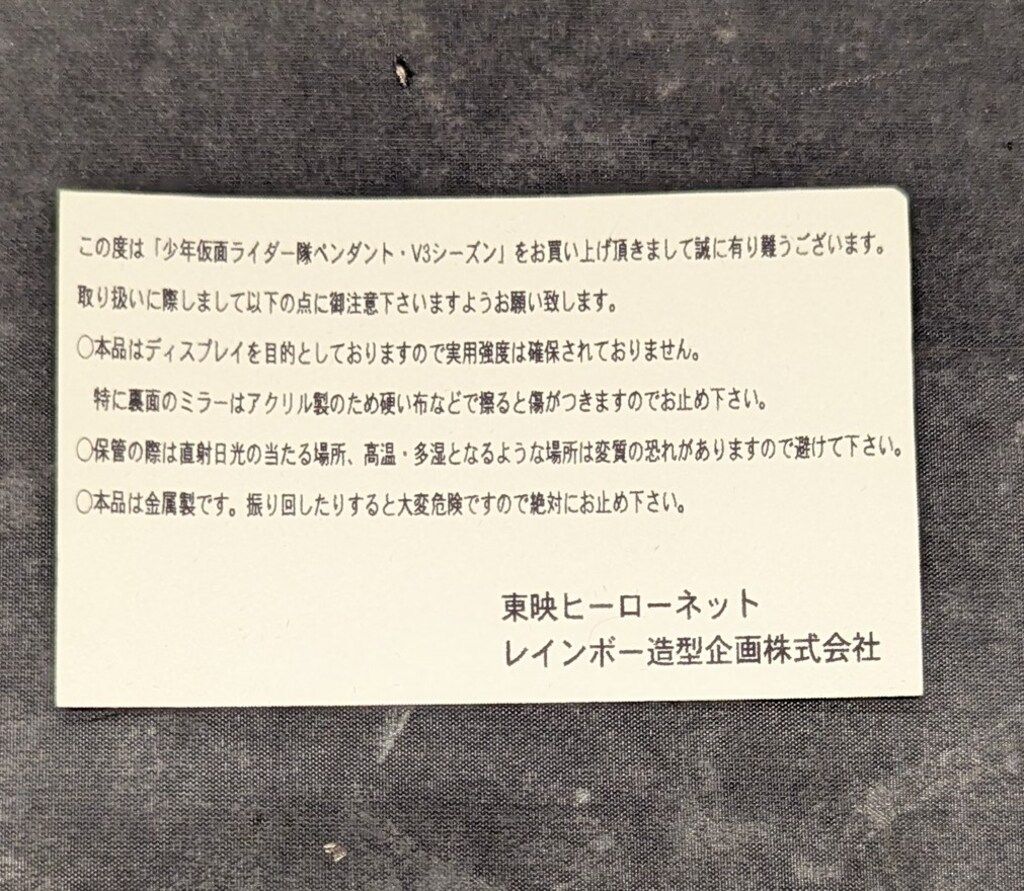 この度は「少年仮面ライダー隊ペンダント・V3シーズン」をお買い上げ頂きまして誠に有り難うございます。
取り扱いに際しまして以下の点に御注意下さいますようお願い致します。
○本品はディスプレイを目的としておりますので実用強度は確保されておりません。
特に裏面のミラーはアクリル製のため硬い布などで擦ると傷がつきますのでお止め下さい。
○保管の際は直射日光の当たる場所、高温・多湿となるような場所は変質の恐れがありますので避けて下さい。
○本品は金属製です。振り回したりすると大変危険ですので絶対にお止め下さい。
東映ヒーローネット
レインボー造型企画株式会社